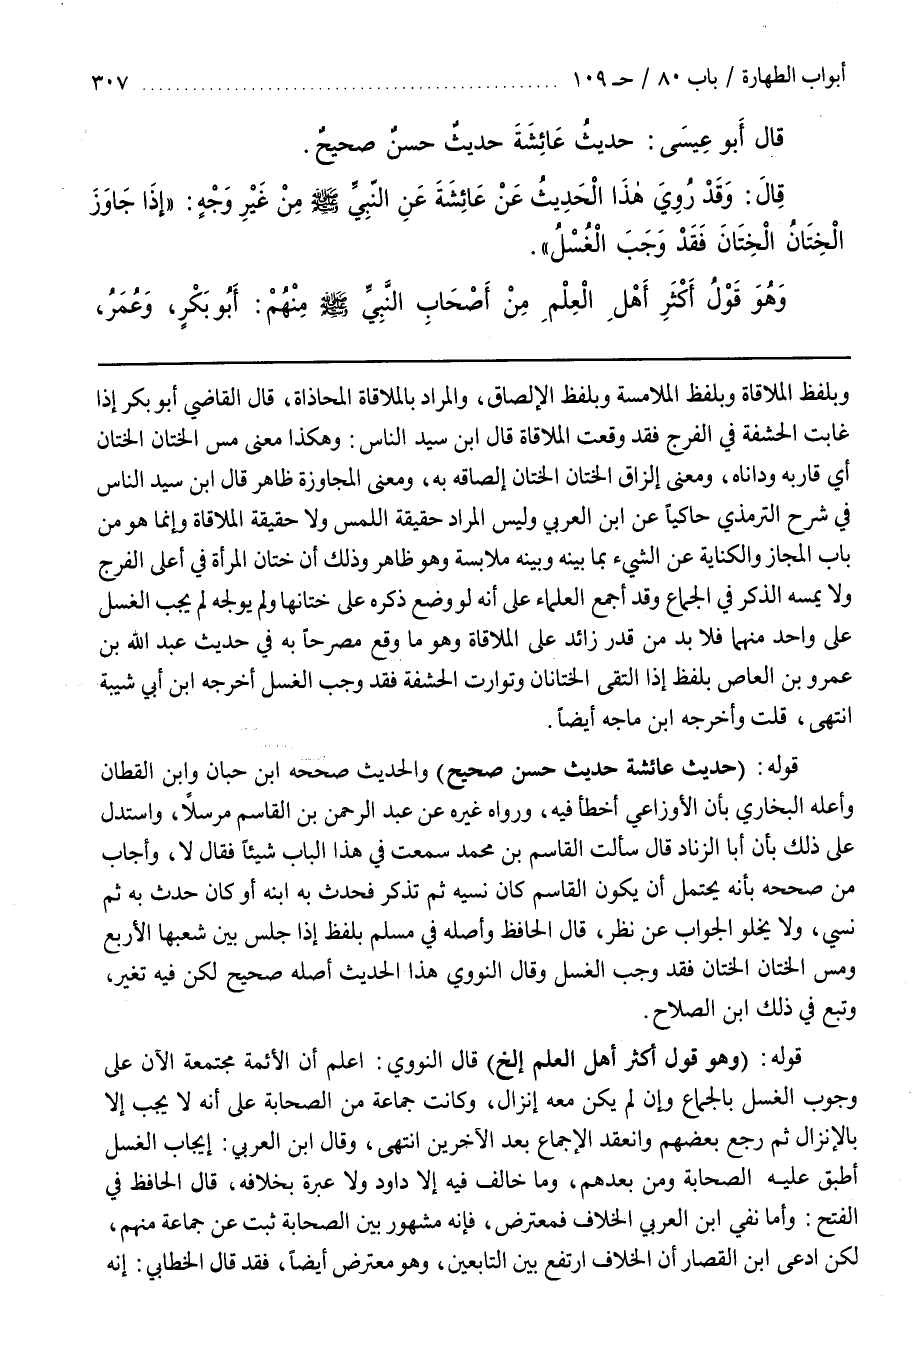 أبواب الطهارة / باب ٨٠ / حـ ١٠٩ ................................................ ٣٠٧
قال أَبو عِيسَى : حديثُ عَائِشَةَ حديثٌ حسنٌ صحيحٌ .
قِالَ : وَقَدْ رُوِيَ هٰذَا الْحَدِيثُ عَنْ عَائِشَةَ عَنِ النَّبِيِّ ﷺ مِنْ غَيْرِ وَجْهٍ : «إِذَا جَاوَزَ
الْخِتَانُ الْخِتَانَ فَقَدْ وَجَبَ الْغُسْلُ» .
وَهُوَ قَوْلُ أَكْثَرِ أَهْلِ الْعِلْمِ مِنْ أَصْحَابِ النَّبِيِّ ﷺ مِنْهُمْ : أَبُو بَكْرٍ، وَعُمَرُ،
وبلفظ الملاقاة وبلفظ الملامسة وبلفظ الإلصاق، والمراد بالملاقاة المحاذاة، قال القاضي أبو بكر إذا
غابت الحشفة في الفرج فقد وقعت الملاقاة قال ابن سيد الناس : وهكذا معنى مس الختان الختان
أي قاربه وداناه، ومعنى إلزاق الختان الختان إلصاقه به، ومعنى المجاوزة ظاهر قال ابن سيد الناس
في شرح الترمذي حاكياً عن ابن العربي وليس المراد حقيقة اللمس ولا حقيقة الملاقاة وإنما هو من
باب المجاز والكناية عن الشيء بما بينه وبينه ملابسة وهو ظاهر وذلك أن ختان المرأة في أعلى الفرج
ولا يمسه الذكر في الجماع وقد أجمع العلماء على أنه لو وضع ذكره على ختانها ولم يولجه لم يجب الغسل
على واحد منهما فلا بد من قدر زائد على الملاقاة وهو ما وقع مصرحاً به في حديث عبد الله بن
عمرو بن العاص بلفظ إذا التقى الختانان وتوارت الحشفة فقد وجب الغسل أخرجه ابن أبي شيبة
انتهى، قلت وأخرجه ابن ماجه أيضاً.
قوله : (حديث عائشة حديث حسن صحيح) والحديث صححه ابن حبان وابن القطان
وأعله البخاري بأن الأوزاعي أخطأ فيه، ورواه غيره عن عبد الرحمن بن القاسم مرسلاً، واستدل
على ذلك بأن أبا الزناد قال سألت القاسم بن محمد سمعت في هذا الباب شيئاً فقال لا، وأجاب
من صححه بأنه يحتمل أن يكون القاسم كان نسيه ثم تذكر فحدث به ابنه أو كان حدث به ثم
نسي، ولا يخلو الجواب عن نظر، قال الحافظ وأصله في مسلم بلفظ إذا جلس بين شعبها الأربع
ومس الختان الختان فقد وجب الغسل وقال النووي هذا الحديث أصله صحيح لكن فيه تغير،
وتبع في ذلك ابن الصلاح.
قوله : (وهو قول أكثر أهل العلم إلخ) قال النووي : اعلم أن الأئمة مجتمعة الآن على
وجوب الغسل بالجماع وإن لم يكن معه إنزال، وكانت جماعة من الصحابة على أنه لا يجب إلا
بالإنزال ثم رجع بعضهم وانعقد الإجماع بعد الآخرين انتهى، وقال ابن العربي : إيجاب الغسل
أطبق عليه الصحابة ومن بعدهم، وما خالف فيه إلا داود ولا عبرة بخلافه، قال الحافظ في
الفتح : وأما نفي ابن العربي الخلاف فمعترض، فإنه مشهور بين الصحابة ثبت عن جماعة منهم،
لكن ادعى ابن القصار أن الخلاف ارتفع بين التابعين، وهو معترض أيضاً، فقد قال الخطابي : إنه